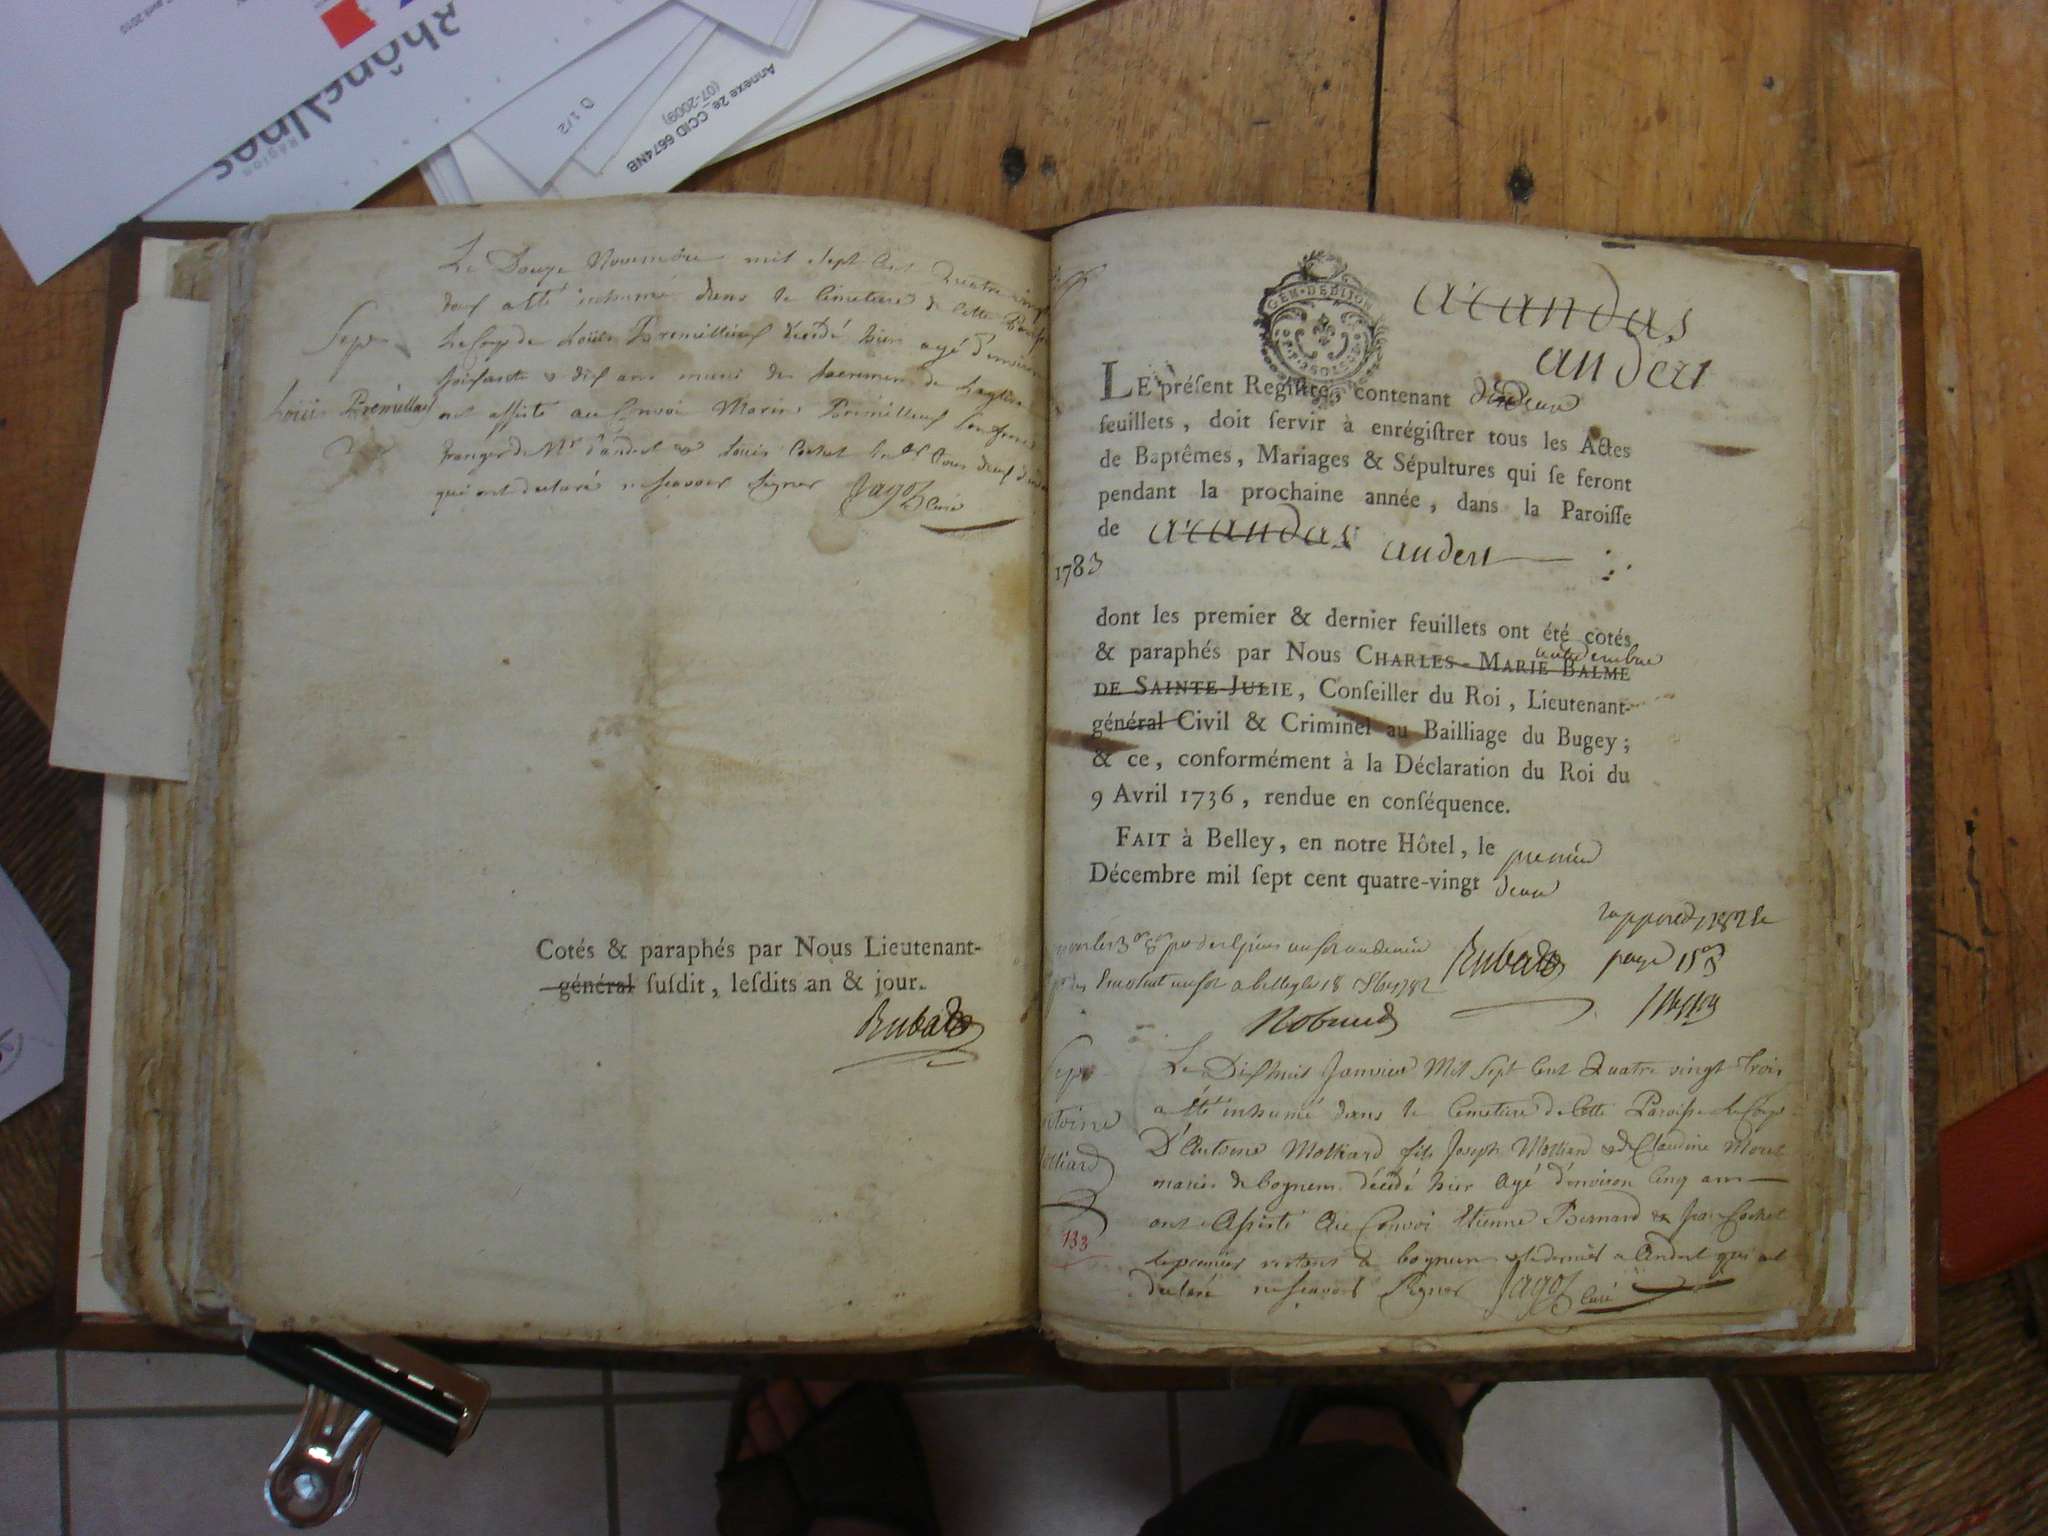 RhôneAlpes
Région
0 1/2
Annexe 2e_CCID 6674NB
(07-2009)
Le Douze Novembre mil sept Cent Quatre vingt
deux a été inhumé dans le Cimetiere de Cette Paroisse
Sep
Le Corps de Louis Premillieux décédé hier agé d'environ
soixante & dix ans muni des sacremens de
Louis Premillieux
ont assisté au Convoi Marin Premillieux
Granger de Mr d'andert & Louis Cochet tous deux
qui ont declaré ne sçavoir signer Jagot
Curé
Cotés & paraphés par Nous Lieutenant-
général susdit, lesdits an & jour.
Rubat
GEN. DE DIJON
arandas
andert
LE présent Registre, contenant dix Deux
feuillets, doit servir à enrégistrer tous les Actes
de Baptêmes, Mariages & Sépultures qui se feront
pendant la prochaine année, dans la Paroisse
de arandas andert
1783
dont les premier & dernier feuillets ont été cotés
& paraphés par Nous CHARLES-MARIE BALME
DE SAINTE-JULIE, Conseiller du Roi, Lieutenant-
général Civil & Criminel au Bailliage du Bugey;
& ce, conformément à la Déclaration du Roi du
9 Avril 1736, rendue en conséquence.
FAIT à Belley, en notre Hôtel, le premier
Décembre mil sept cent quatre-vingt deux
Rubat
a belley le 18
Sep
Le Dixhuit Janvier Mil Sept Cent Quatre vingt Trois
a été inhumé dans le Cimetiere de Cette Paroisse le Corps
D'Antoine Molliard fils Joseph Molliard & de Claudine Moret
mariés de Cognens décédé hier Agé d'environ Cinq ans
133
ont Assisté Au Convoi Etienne Bernard & Cochet
le premier & le dernier a Andert qui ont
declaré ne sçavoir Signer Jagot Curé